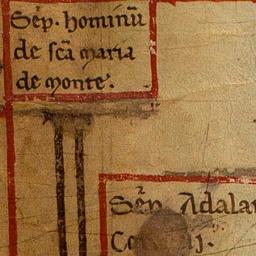 Sep̄. hominū
de sc̄a maria
de monte.
Sep̄. Adalar